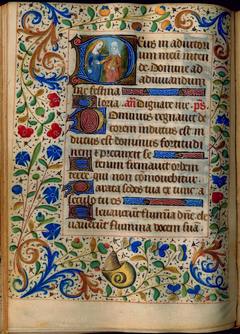 Deus in adiutori
um meum inten
de Domine ad
adiuuandum
me festina
Gloria. an. Dignare me. ps.
Dominus regnauit de
corem indutus est in
dutus est dominus fortitudi
nem et precinxit se
Etenim firmauit orbem
terre qui non commouebitur
Parata sedes tua ex tunc a
seculo tu es
Eleuauerunt flumina dne ele
uauerunt flumina vocem suā